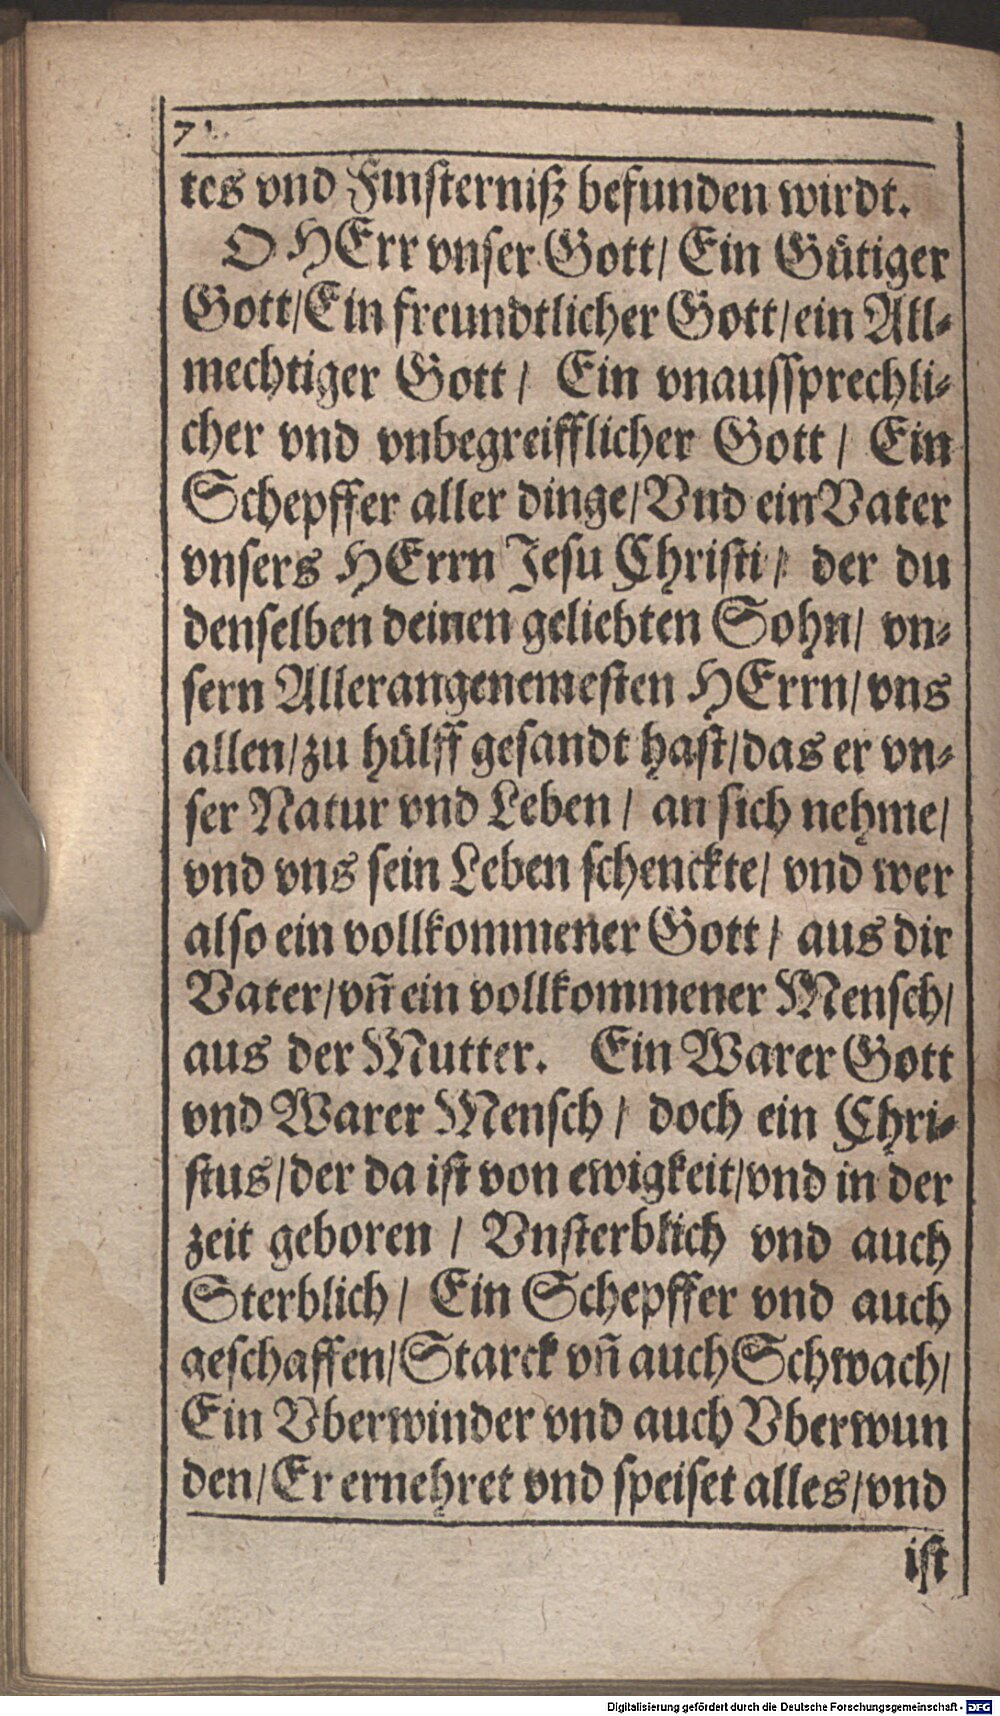 tes vnd Finsterniß befunden wirdt.
O HErr vnser Gott/ Ein Gütiger
Gott/Ein freundtlicher Gott/ein All-
mechtiger Gott/ Ein vnaussprechli-
cher vnd vnbegreifflicher Gott/ Ein
Schepffer aller dinge/Vnd ein Vater
vnsers HErrn Jesu Christi/ der du
denselben deinen geliebten Sohn/ vn-
sern Allerangenemesten HErrn/vns
allen/zu hülff gesandt hast/das er vn-
ser Natur vnd Leben/ an sich nehme/
vnd vns sein Leben schenckte/ vnd wer
also ein vollkommener Gott/ aus dir
Vater/vñ ein vollkommener Mensch/
aus der Mutter. Ein Warer Gott
vnd Warer Mensch/ doch ein Chri-
stus/der da ist von ewigkeit/vnd in der
zeit geboren/ Vnsterblich vnd auch
Sterblich/ Ein Schepffer vnd auch
geschaffen/Starck vñ auch Schwach/
Ein Vberwinder vnd auch Vberwun
den/Er ernehret vnd speiset alles/vnd
ist
Digitalisierung gefördert durch die Deutsche Forschungsgemeinschaft - DFG